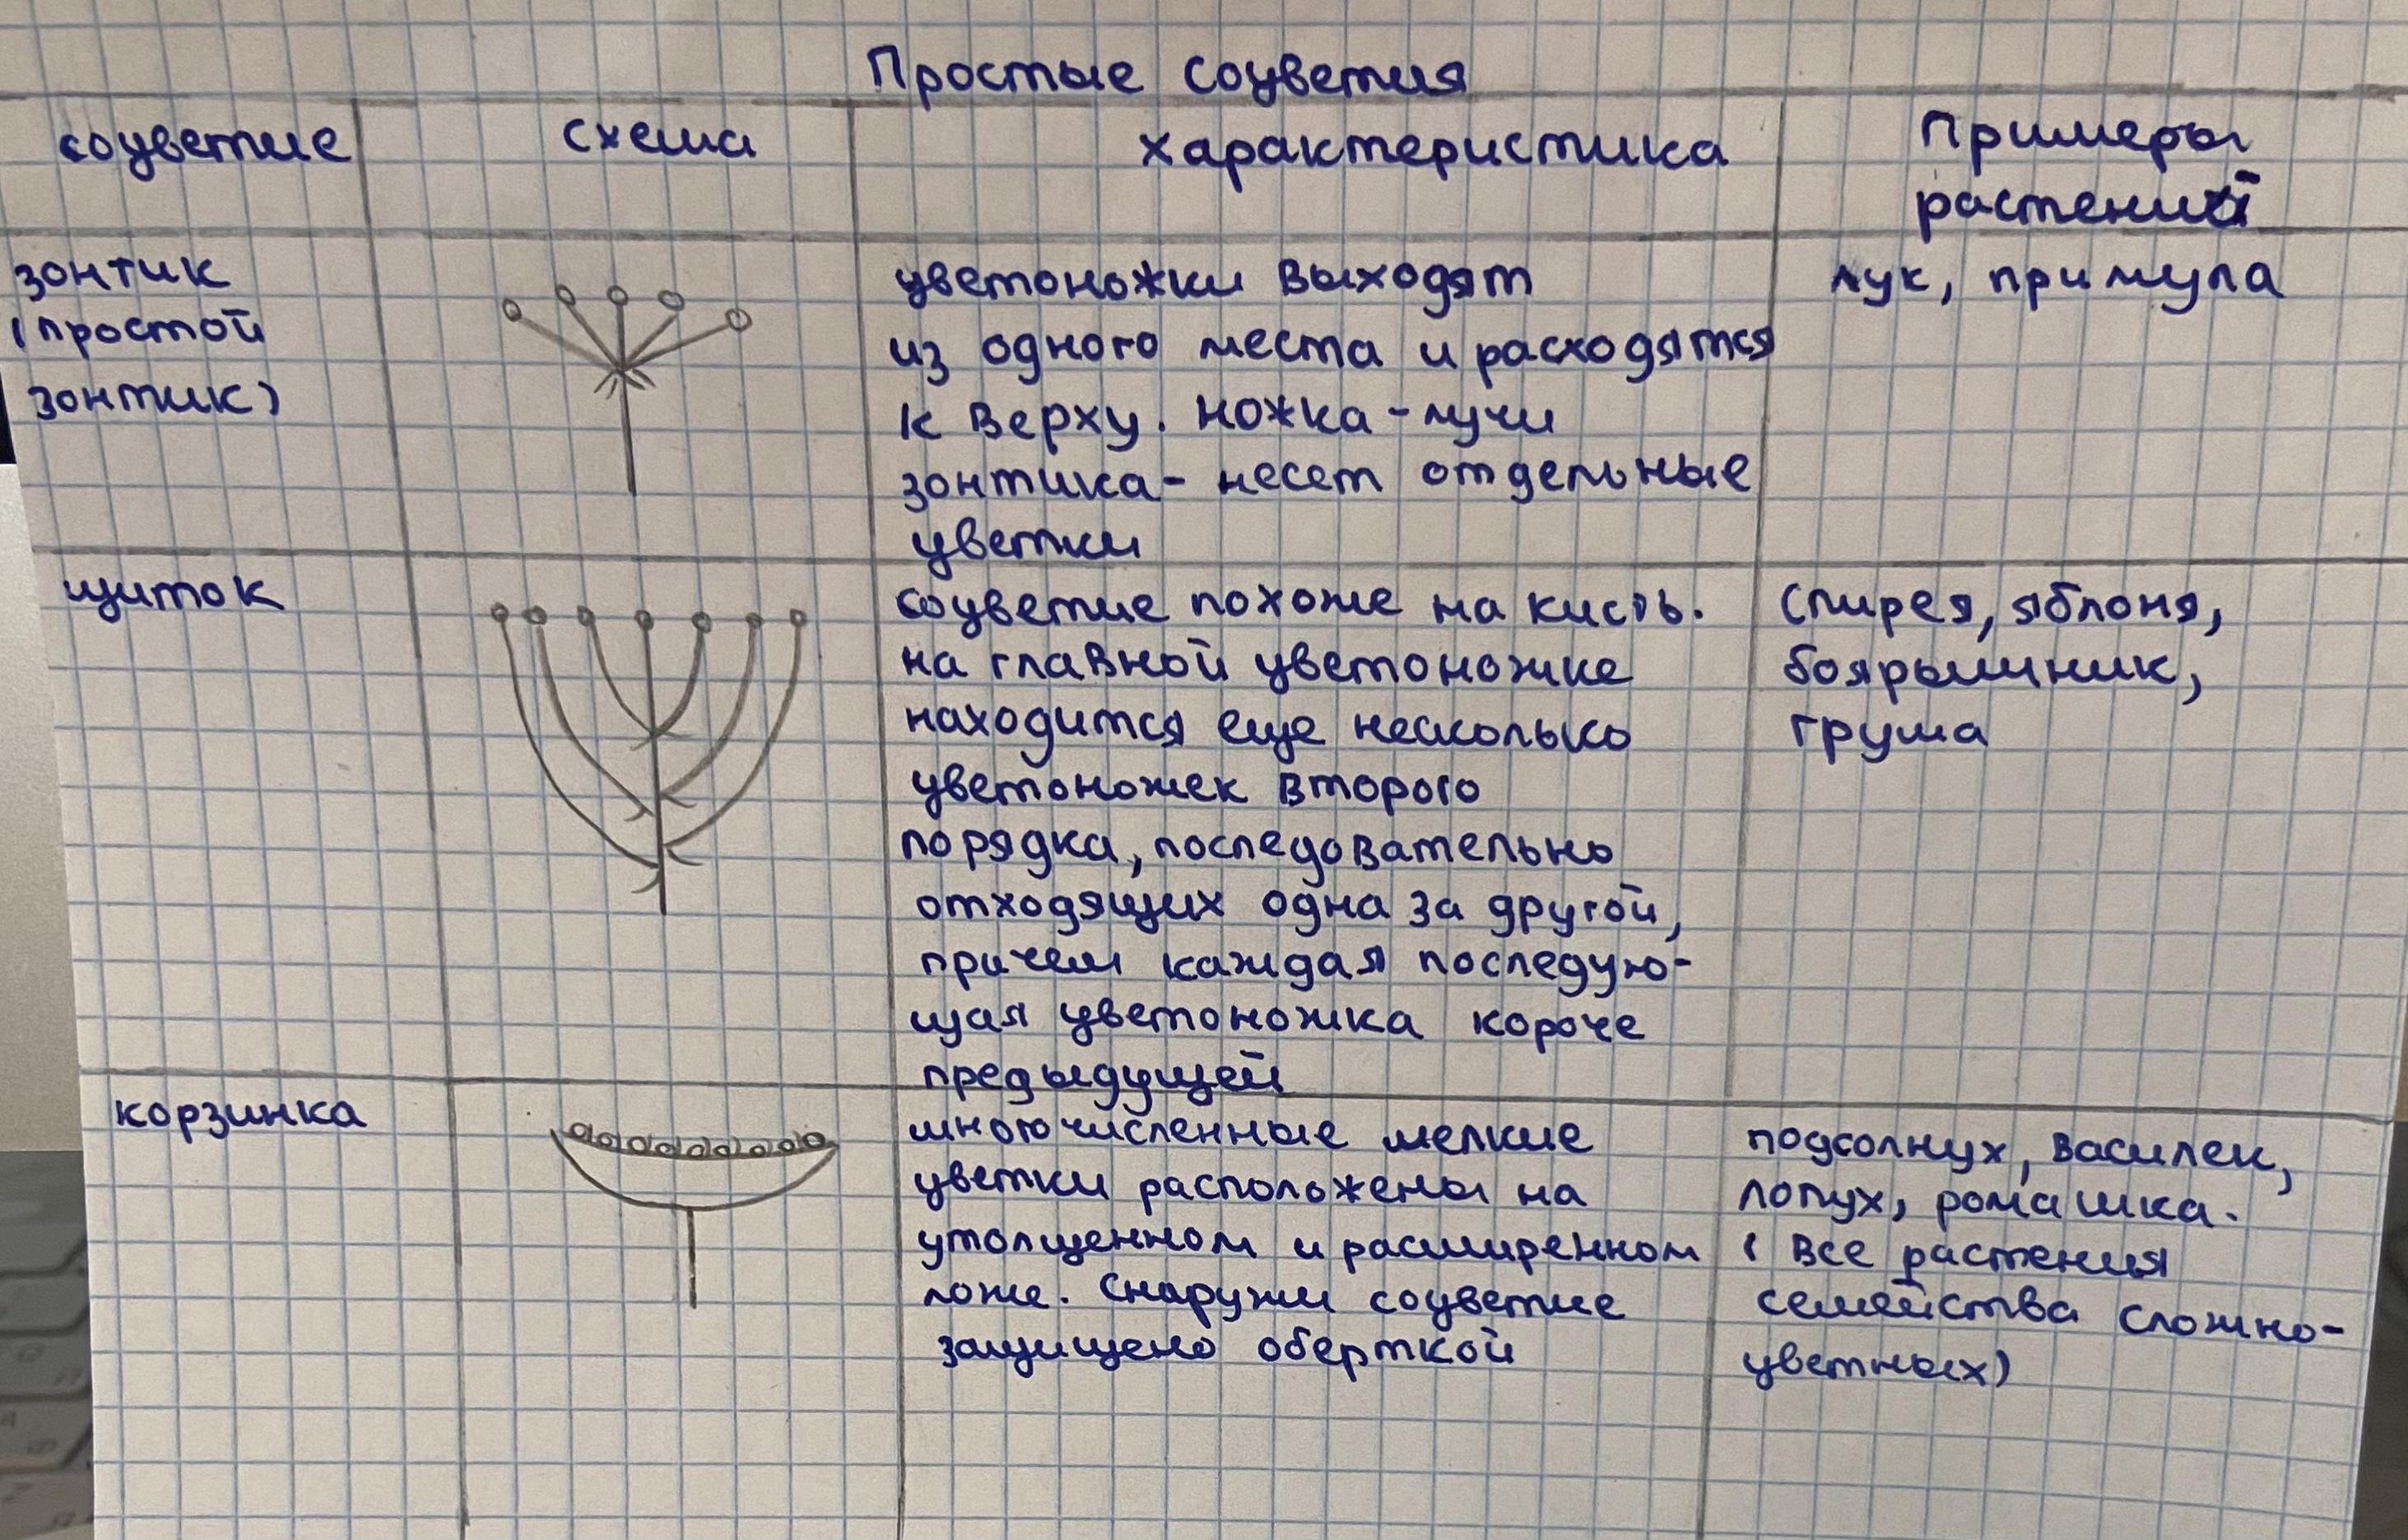 Простые соцветия
соцветие
схема
характеристика
Примеры
растений
зонтик
(простой
зонтик)
цветоножки выходят
из одного места и расходятся
к верху. ножка - лучи
зонтика - несет отдельные
цветки
лук, примула
щиток
соцветие похоже на кисть.
на главной цветоножке
находится еще несколько
цветоножек второго
порядка, последовательно
отходящих одна за другой,
причем каждая последую-
щая цветоножка короче
предыдущей
Спирея, яблоня,
боярышник,
груша
корзинка
многочисленные мелкие
цветки расположены на
утолщенном и расширенном
ложе. Снаружи соцветие
защищено оберткой
подсолнух, василек,
лопух, ромашка.
(Все растения
семейства сложно-
цветных)